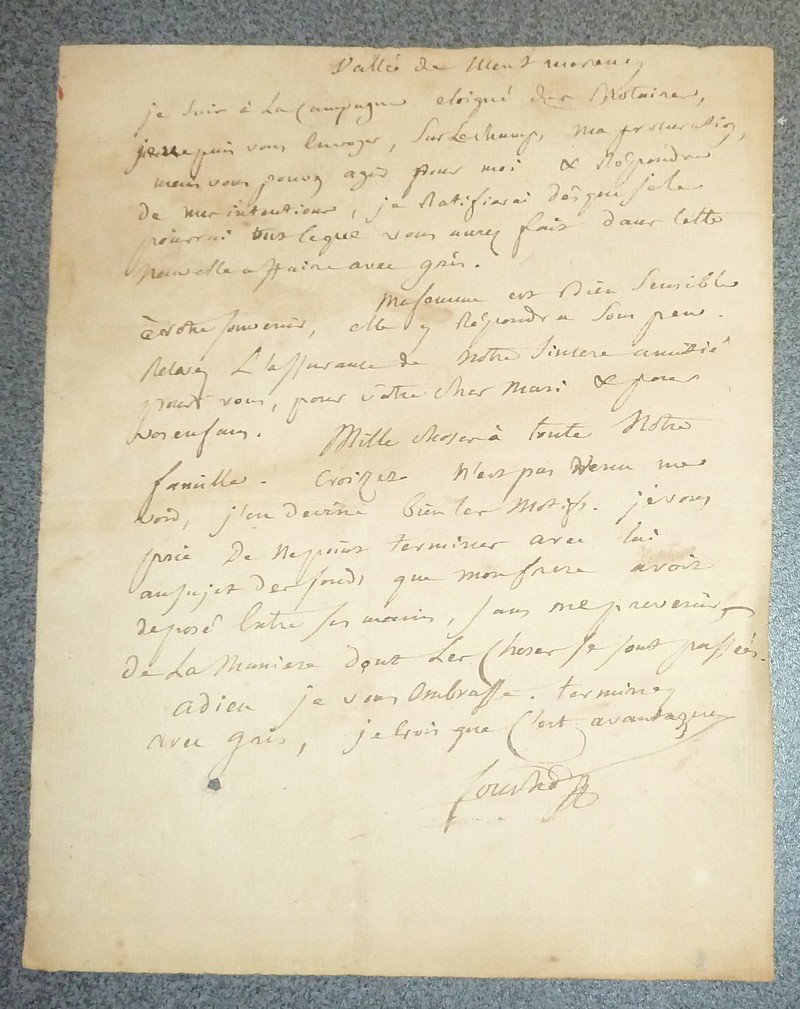 Vallée de Montmorency
je suis à La Campagne eloigné des Notaires,
je ne puis vous Envoyer, Sur Le champ, ma procuration,
mais vous pouvez agir pour moi & Répondre
de mes intentions, je Ratifierai dès que je le
pourrai tout ce que vous aurez fait dans cette
nouvelle affaire avec grés.
Ma femme est Bien Sensible
à votre souvenir, elle y Répondra Sous peu.
Recevez L'assurance de Notre Sincere amitié
pour vous, pour vôtre cher Mari & pour
vos enfans. Mille choses à toute Notre
famille. N'est pas venu me
voir, j'en devine bien les Motifs. je vous
prie De Ne point terminer avec lui
au sujet des fonds que mon frere avoit
deposé Entre ses mains, sans me prevenir
de La Maniere dont Les Choses se sont passées.
adieu je vous Embrasse. terminez
avec grés, je crois que C'est avantageux
Jourdan